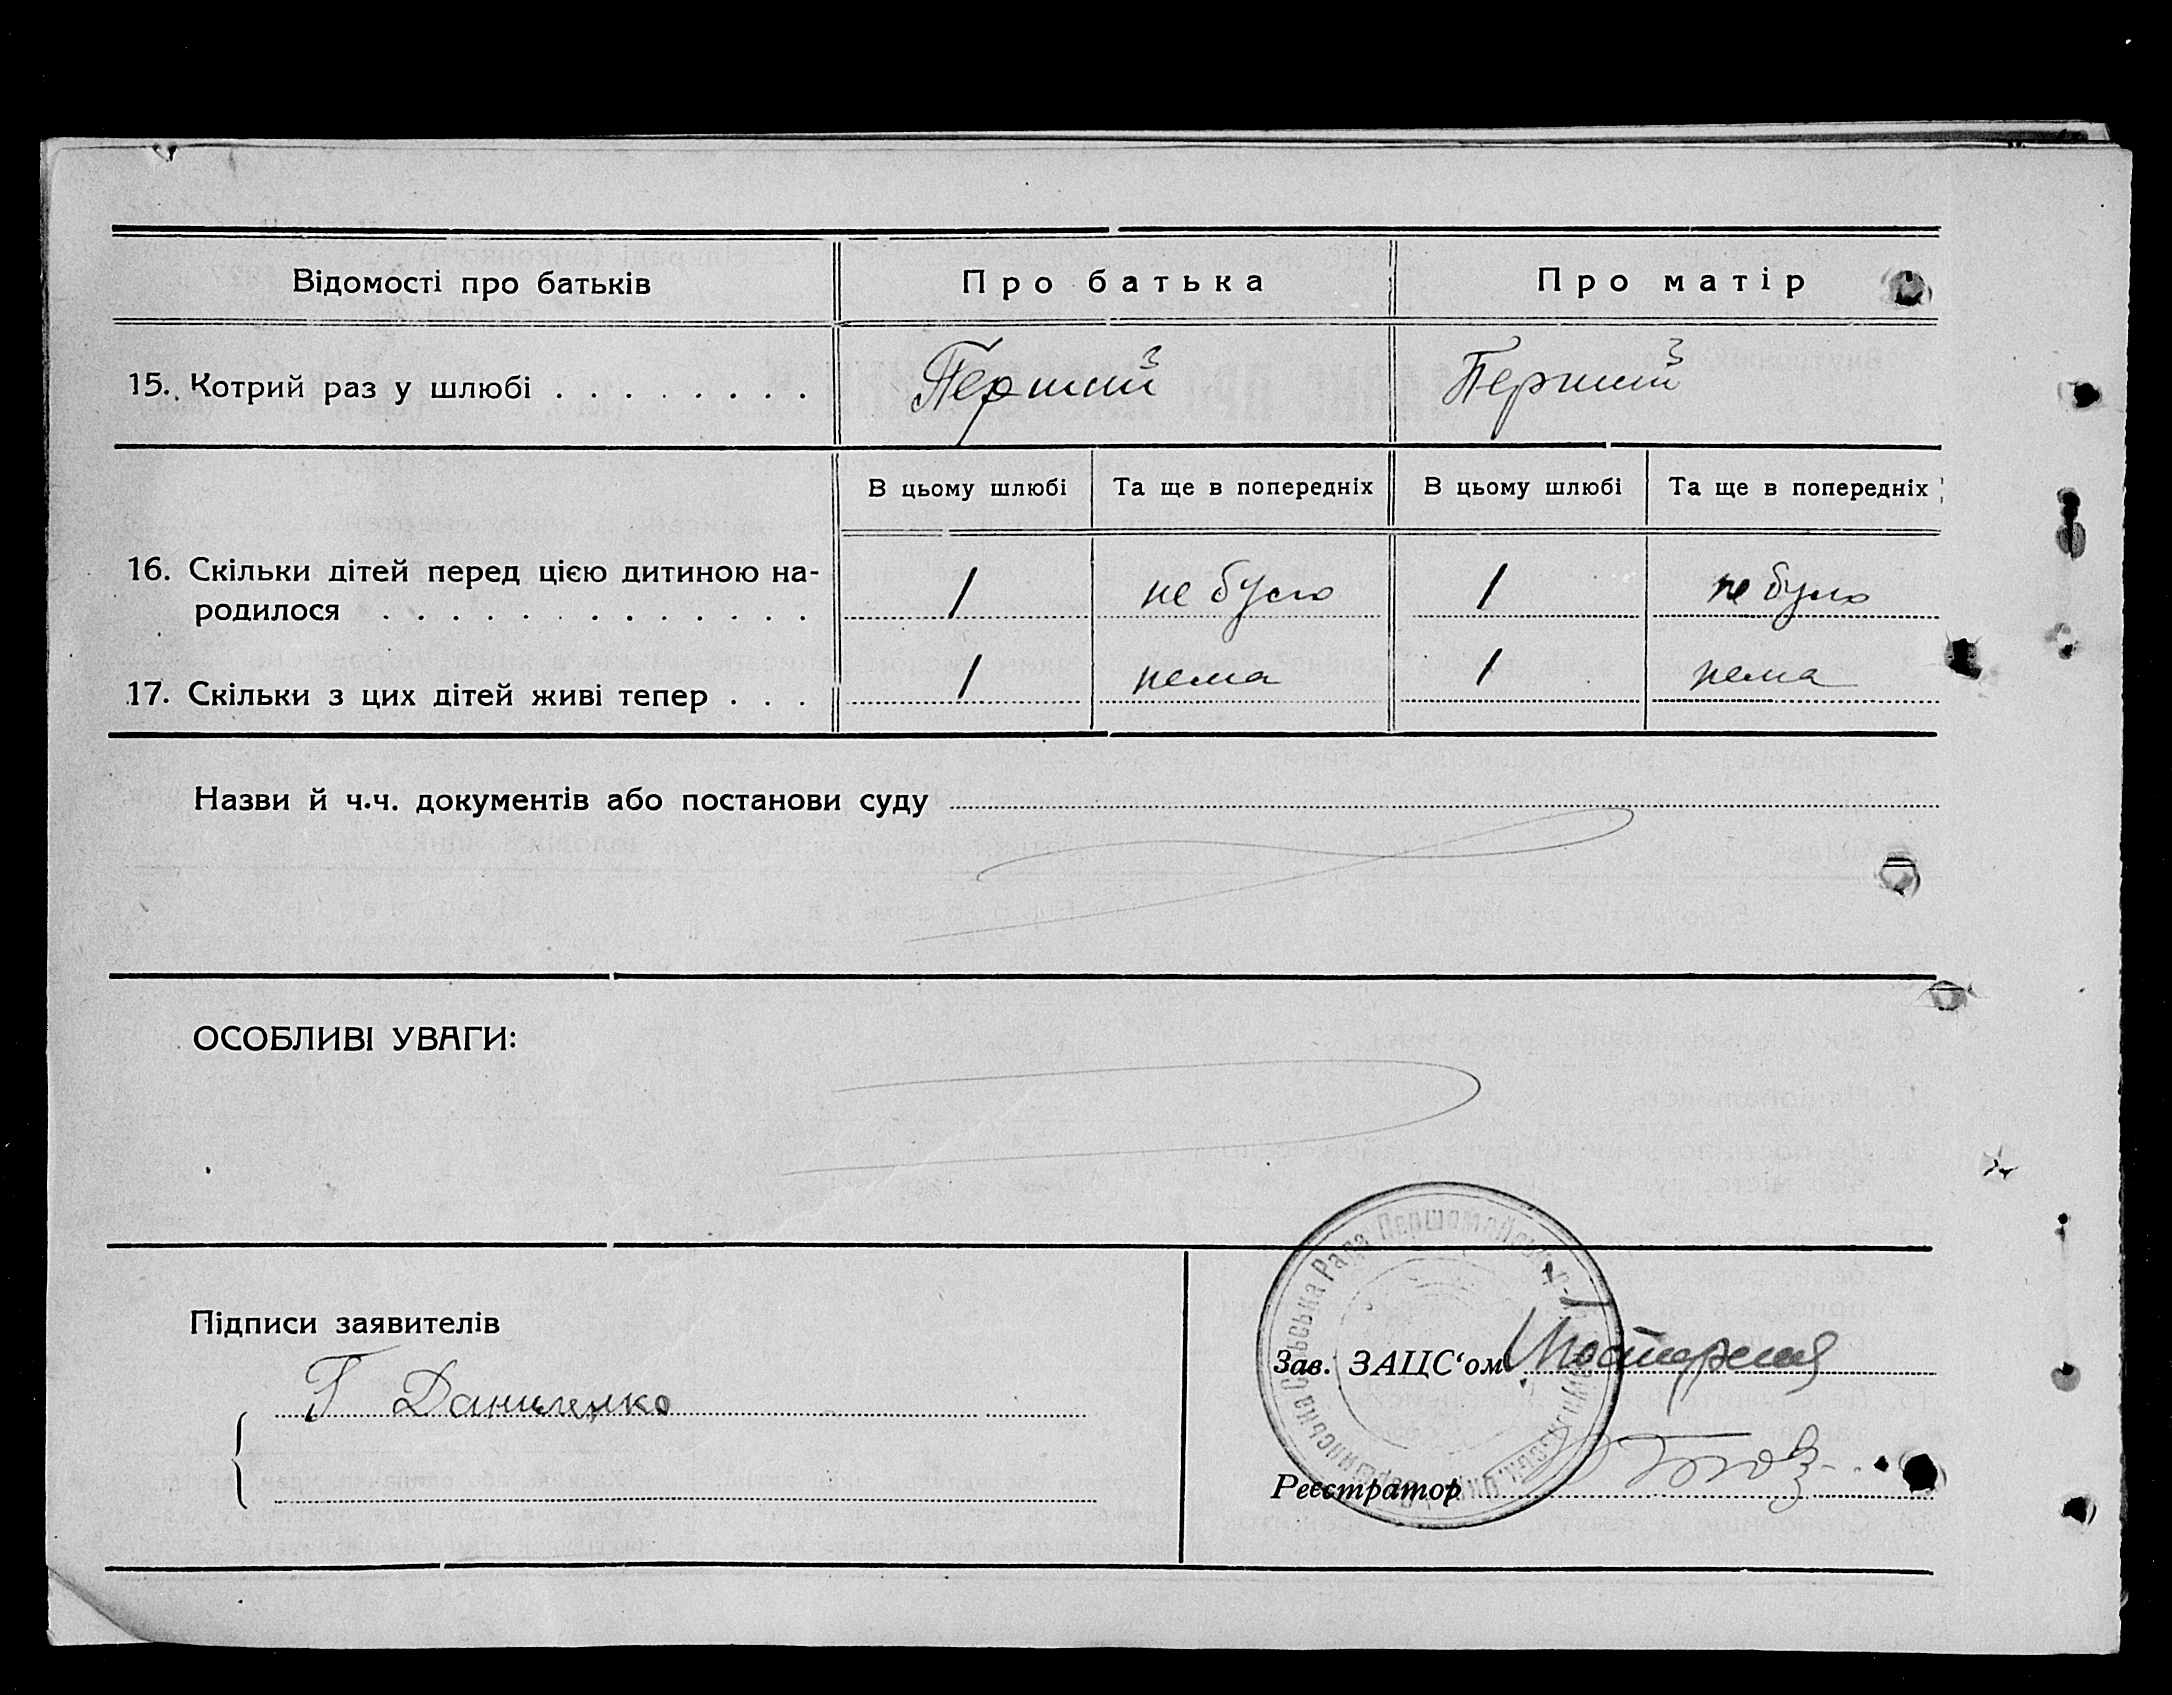 Відомості про батьків Про батька Про матір
15. Котрий раз у шлюбі . . . . . . . . Перший Перший
В цьому шлюбі Та ще в попередніх В цьому шлюбі Та ще в попередніх
16. Скільки дітей перед цією дитиною на-
родилося . . . . . . . . . . . . . 1 не було 1 не було
17. Скільки з цих дітей живі тепер . . . 1 нема 1 нема
Назви й ч.ч. документів або постанови суду
ОСОБЛИВІ УВАГИ:
Сільська Рада Першомайськ
Підписи заявителів
Г Даниленко
Зав. ЗАЦС‘ом
Реєстратор